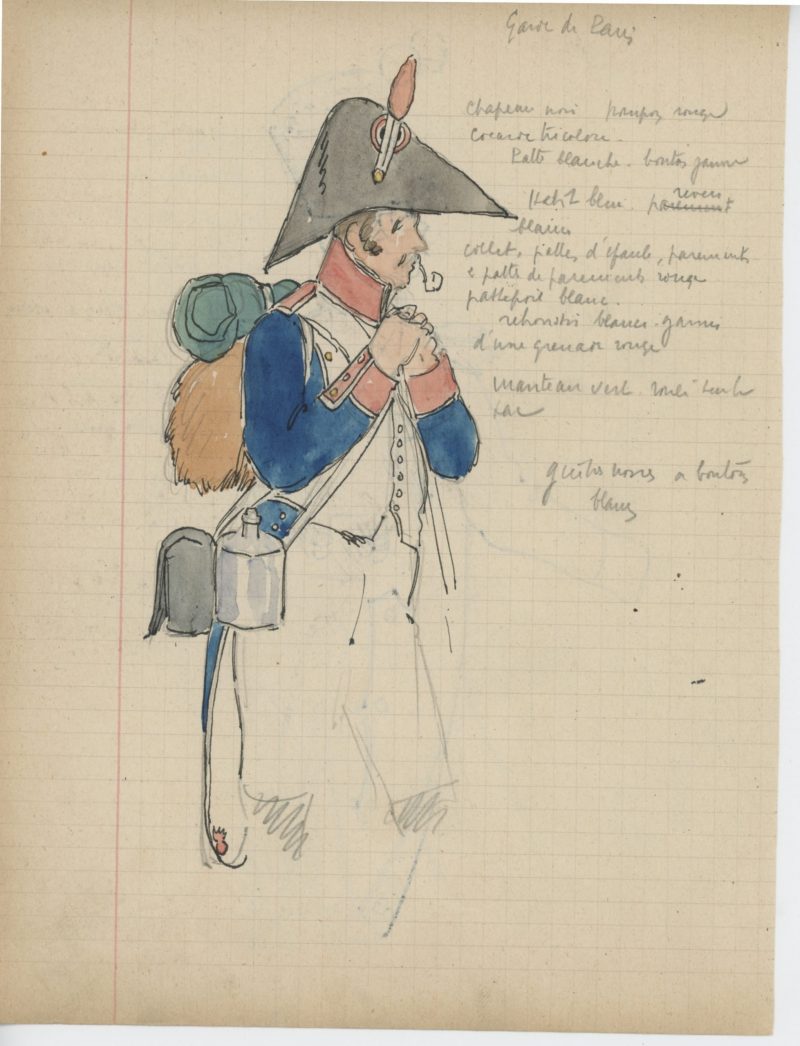 Garde de Paris
chapeau noir pompon rouge
cocarde tricolore.
Patte blanche. bouton jaune
Habit bleu. parement revers
blancs
collet, pattes d'épaule, parements
& patte de parements rouge
passepoil blanc.
retroussis blancs. garnis
d'une grenade rouge
manteau vert roulé sur le
sac
guêtres noires a boutons
blancs